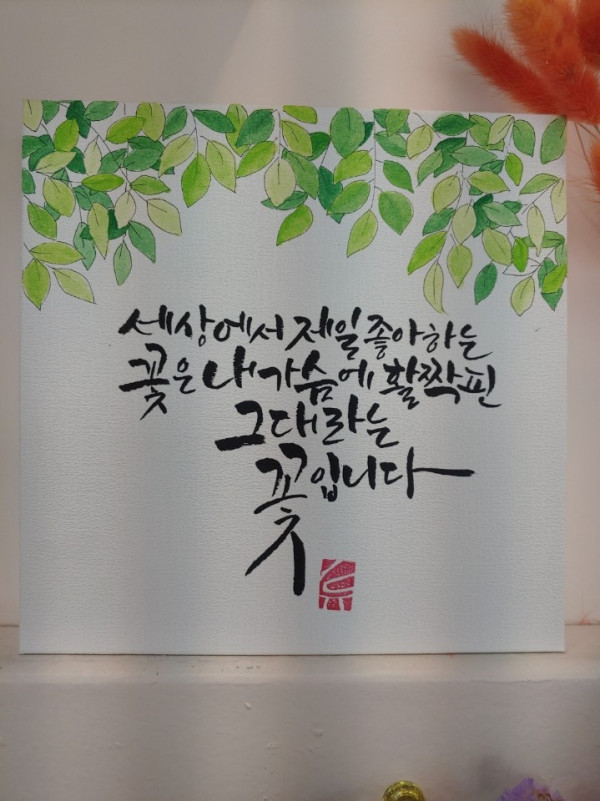 세상에서 제일 좋아하는
꽃은 내 가슴에 활짝 핀
그대라는
꽃입니다